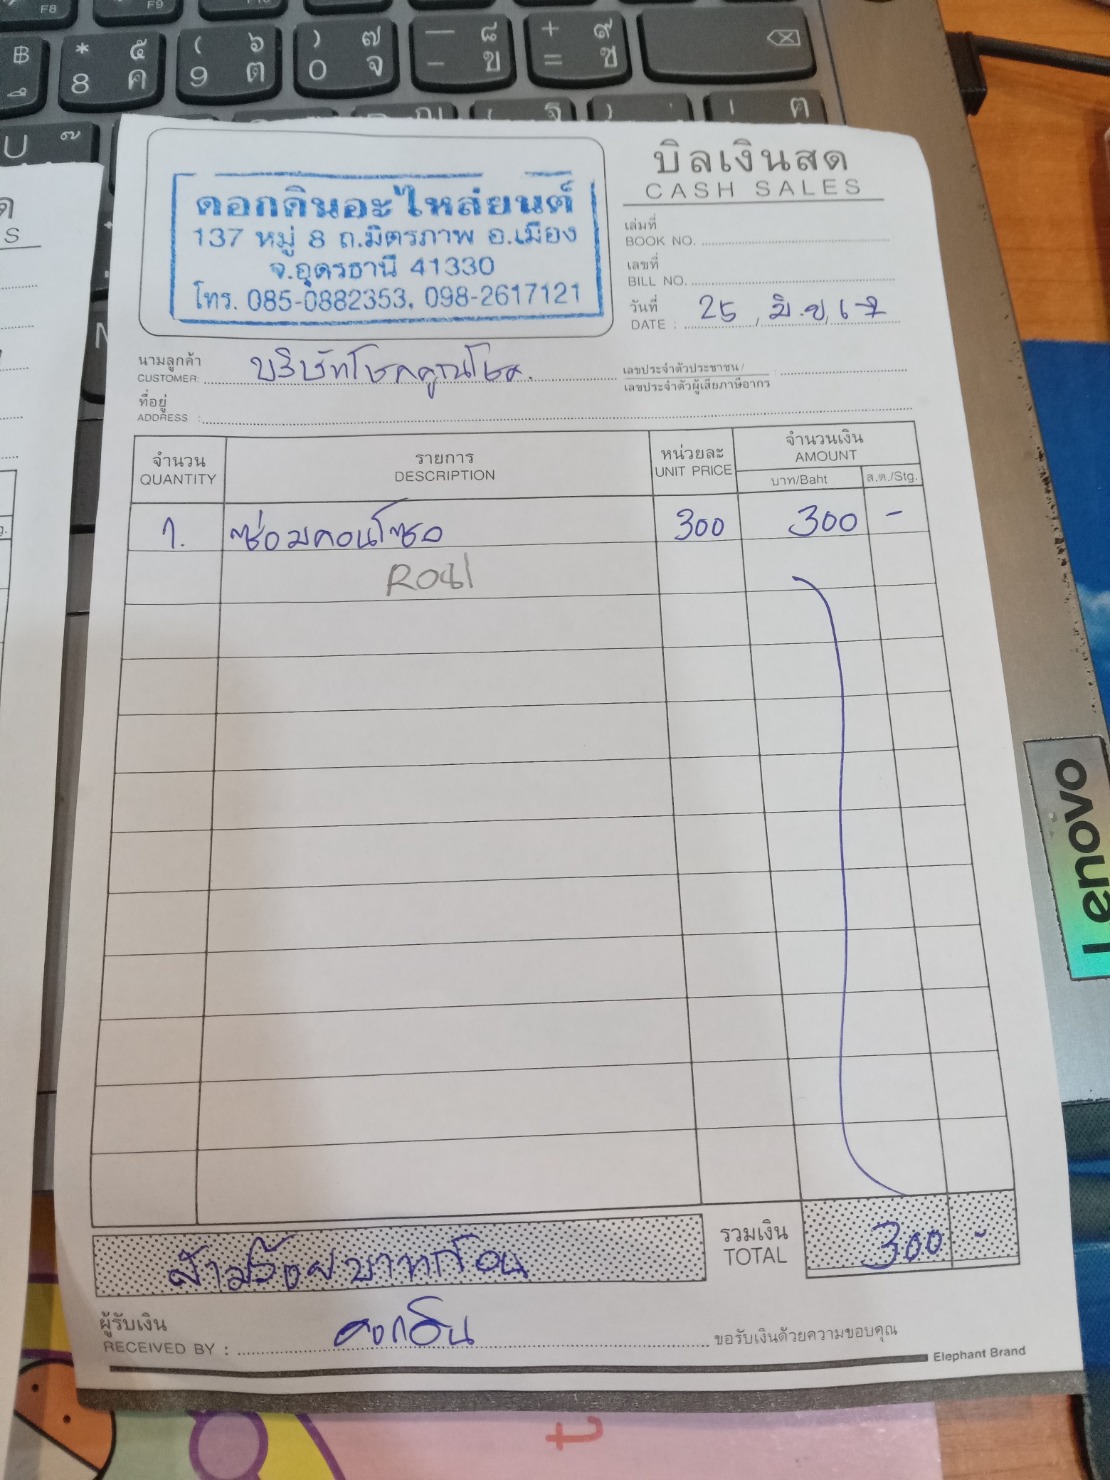 F8
F9
฿
* ๕
8 ค
( ๖
9 ต
) ๗
0 จ
— ๘
- ข
+ ๙
= ช
U ๊
บิลเงินสด
CASH SALES
ดอกดินอะไหล่ยนต์
137 หมู่ 8 ถ.มิตรภาพ อ.เมือง
จ.อุดรธานี 41330
โทร. 085-0882353, 098-2617121
เล่มที่
BOOK NO.
เลขที่
BILL NO.
วันที่
DATE : 25 มิ.ย. 67
นามลูกค้า
CUSTOMER: บริษัทโชคคูณโชค.
เลขประจำตัวประชาชน/
เลขประจำตัวผู้เสียภาษีอากร :
ที่อยู่
ADDRESS :
จำนวน รายการ หน่วยละ จำนวนเงิน
QUANTITY DESCRIPTION UNIT PRICE AMOUNT
บาท/Baht ส.ต./Stg.
1. ซ่อมคอนโซล 300 300 -
สามร้อยบาทถ้วน
รวมเงิน
TOTAL 300 -
ผู้รับเงิน
RECEIVED BY : ดอกดิน
ขอรับเงินด้วยความขอบคุณ
Elephant Brand
Lenovo
t